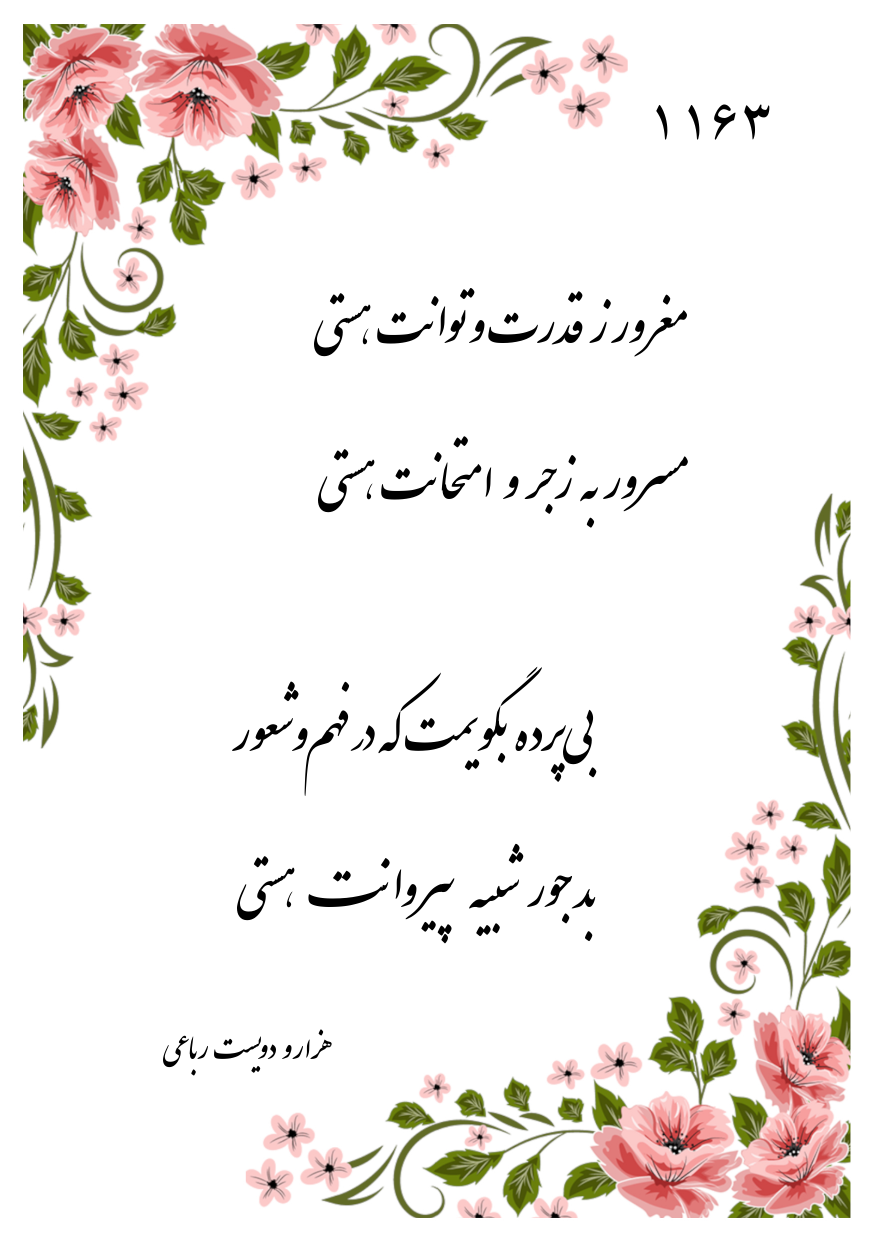 ۱۱۶۳
مغرور ز قدرت و توانت هستی
مسرور به زجر و امتحانت هستی
بی پرده بگویمت که در فهم و شعور
بد جور شبیه پیروانت هستی
هزار و دویست رباعی